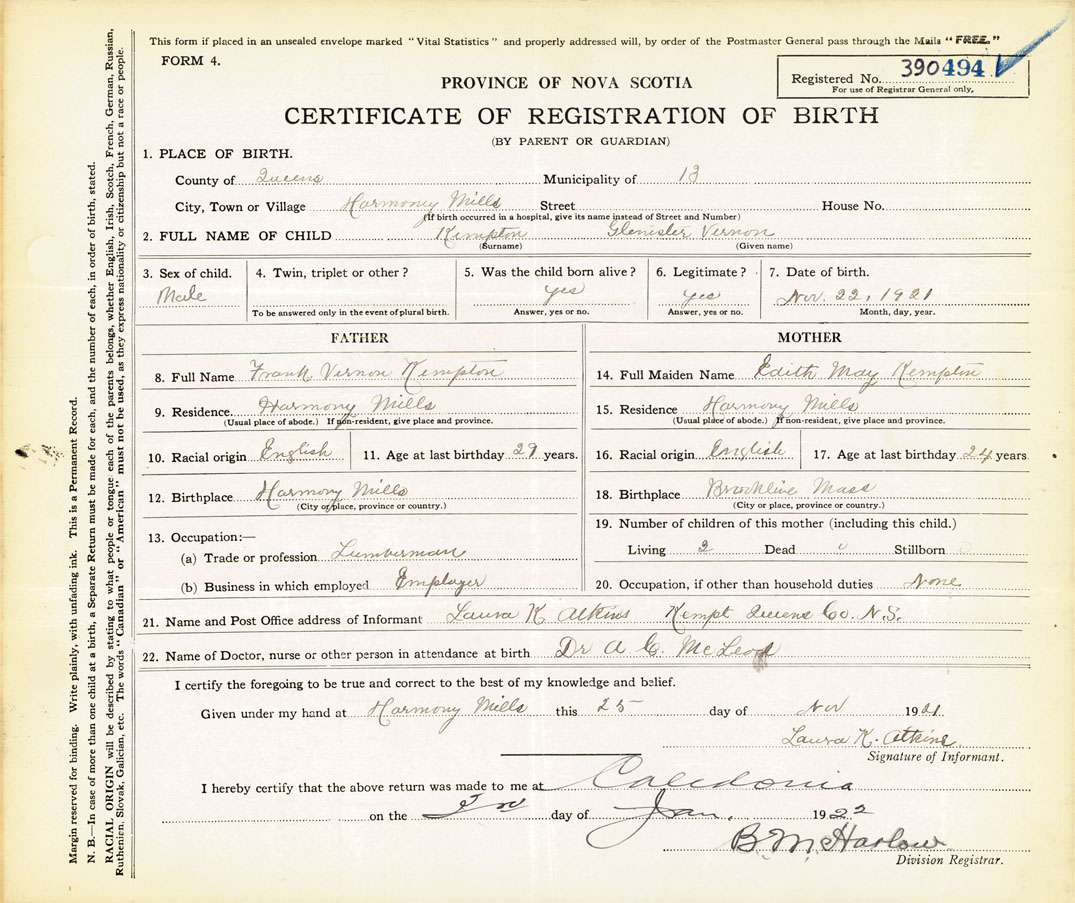 This form if placed in an unsealed envelope marked "Vital Statistics" and properly addressed will, by order of the Postmaster General pass through the Mails "FREE."
FORM 4.
Registered No. 390494
For use of Registrar General only.
PROVINCE OF NOVA SCOTIA
CERTIFICATE OF REGISTRATION OF BIRTH
(BY PARENT OR GUARDIAN)
1. PLACE OF BIRTH.
County of Queens Municipality of 13
City, Town or Village Harmoney Mills Street House No.
(If birth occurred in a hospital, give its name instead of Street and Number)
2. FULL NAME OF CHILD Kempton Glenister Vernon
(Surname) (Given name)
3. Sex of child. 4. Twin, triplet or other? 5. Was the child born alive? 6. Legitimate? 7. Date of birth.
Male yes yes Nov. 22, 1921
To be answered only in the event of plural birth. Answer, yes or no. Answer, yes or no. Month, day, year.
FATHER MOTHER
8. Full Name Frank Vernon Kempton 14. Full Maiden Name Edith May Kempton
9. Residence. Harmony Mills 15. Residence Harmony Mills
(Usual place of abode.) If non-resident, give place and province. (Usual place of abode.) If non-resident, give place and province.
10. Racial origin English 11. Age at last birthday 29 years. 16. Racial origin English 17. Age at last birthday 24 years
12. Birthplace Harmony Mills 18. Birthplace Brookline Mass
(City or place, province or country.) (City or place, province or country.)
13. Occupation:— 19. Number of children of this mother (including this child.)
(a) Trade or profession Lumberman Living 2 Dead 0 Stillborn 0
(b) Business in which employed Employer 20. Occupation, if other than household duties None
21. Name and Post Office address of Informant Laura K Atkins Kempt Queens Co. N.S.
22. Name of Doctor, nurse or other person in attendance at birth Dr A C. McLeod
I certify the foregoing to be true and correct to the best of my knowledge and belief.
Given under my hand at Harmony Mills this 25 day of Nov 1921.
Laura K. Atkins
Signature of Informant.
I hereby certify that the above return was made to me at Caledonia
on the day of Jan. 1922
B McHarlow
Division Registrar.
Margin reserved for binding. Write plainly, with unfading ink. This is a Permanent Record.
N. B.—In case of more than one child at a birth, a Separate Return must be made for each, and the number of each, in order of birth, stated.
RACIAL ORIGIN will be described by stating to what people or tongue each of the parents belongs, whether English, Irish, Scotch, French, German, Russian,
Ruthenien, Slovak, Galician, etc. The words "Canadian" or "American" must not be used, as they express nationality or citizenship but not a race or people.